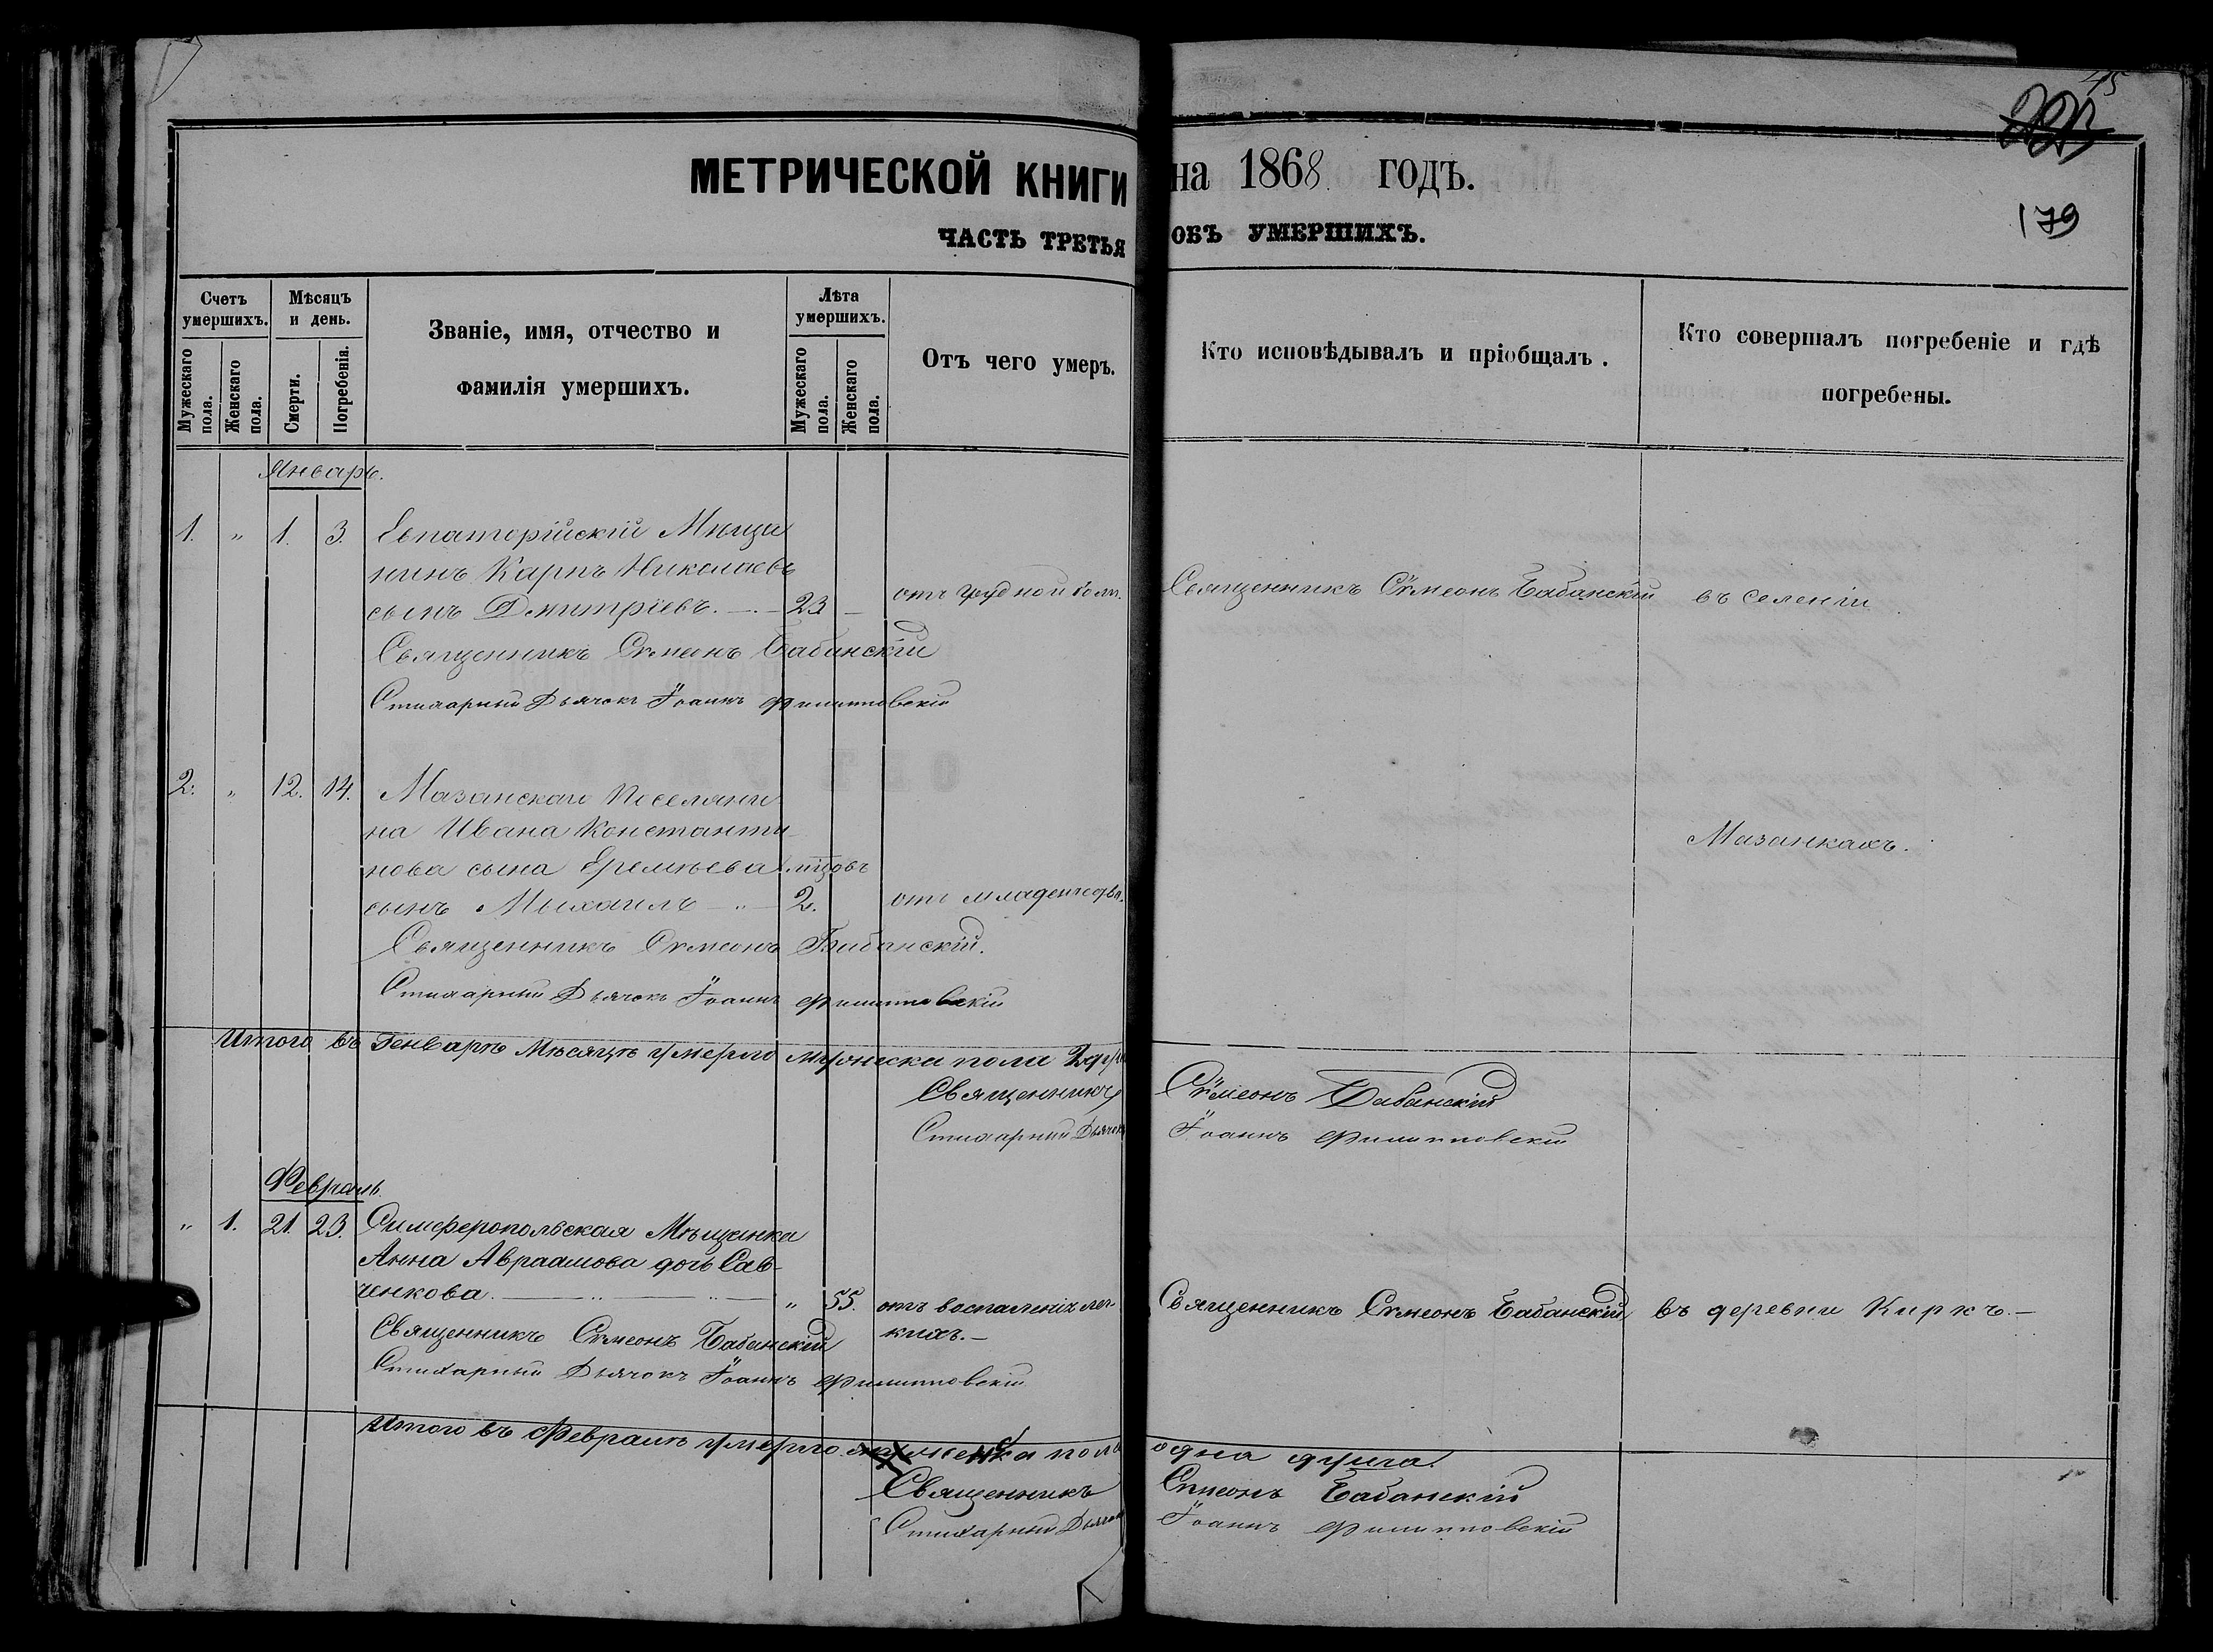 45
179
МЕТРИЧЕСКОЙ КНИГИ на 1868 ГОДЪ.
ЧАСТЬ ТРЕТЬЯ ОБЪ УМЕРШИХЪ.
Счетъ умершихъ.
Мужескаго пола.
Женскаго пола.
Мѣсяцъ и день.
Смерти.
Погребенія.
Званіе, имя, отчество и
фамилія умершихъ.
Лѣта умершихъ.
Мужескаго пола.
Женскаго пола.
Отъ чего умеръ.
Кто исповѣдывалъ и пріобщалъ.
Кто совершалъ погребеніе и гдѣ
погребены.
Январь.
1. " 1. 3. Евпаторійскій Мѣща
нинъ Карпъ Николаевъ
сынъ Дмитріевъ. 23 отъ грудной боли. Священникъ Сѵмеонъ Бабанскій въ селеніи
Священникъ Сѵмеонъ Бабанскій
Стихарный Дьячокъ Іоаннъ Филипповскій
2. " 12. 14. Мазанскаго поселяни
на Ивана Константи
нова сына Еремѣева
Мазанкахъ.
сынъ Михаилъ 2. отъ младенческ.
Священникъ Сѵмеонъ Бабанскій.
Стихарный Дьячокъ Іоаннъ Филипповскій
Итого въ Генварѣ Мѣсяцѣ умерло мужеска пола 2
Священникъ Сѵмеонъ Бабанскій
Стихарный Дьячокъ Іоаннъ Филипповскій
Февраль.
" 1. 21. 23. Симферопольская Мѣщанка
Анна Авраамова дочь Сав-
ченкова. " 55. отъ воспаленія лег-
кихъ. Священникъ Сѵмеонъ Бабанскій въ деревни Киркъ.
Священникъ Сѵмеонъ Бабанскій
Стихарный Дьячокъ Іоаннъ Филипповскій
Итого въ Февралѣ умерло женска пола одна душа.
Священникъ Симеонъ Бабанскій
Стихарный Дьячокъ Іоаннъ Филипповскій